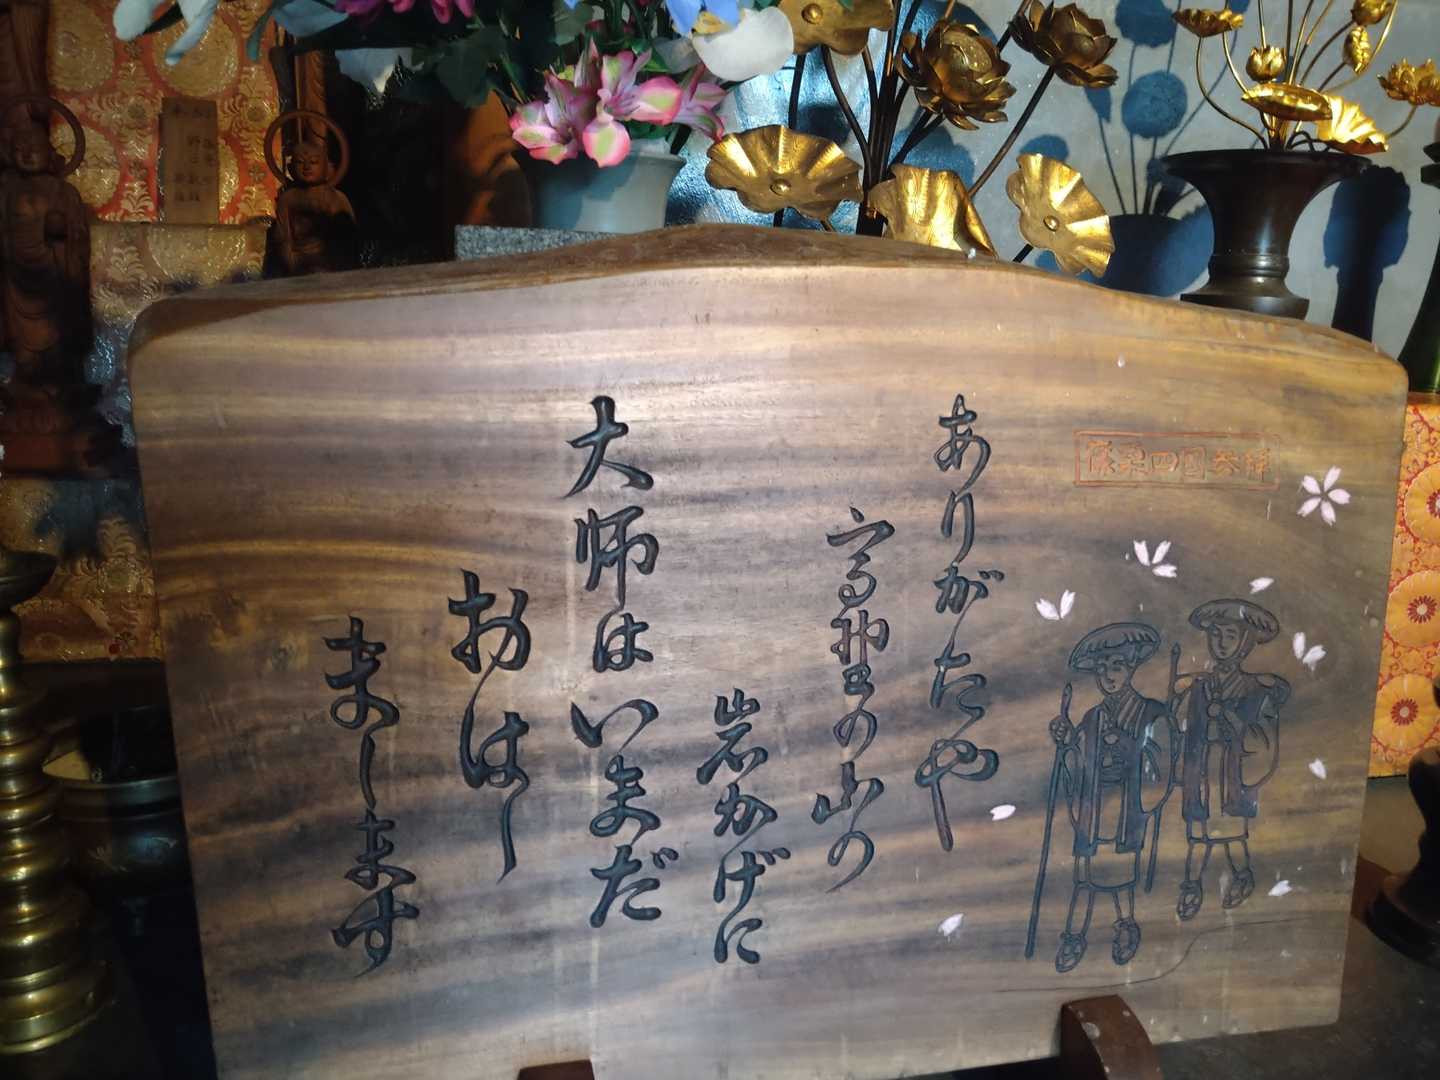 篠栗四国参拝
ありがたや
高野の山の
岩かげに
大師はいまだ
おはし
まします